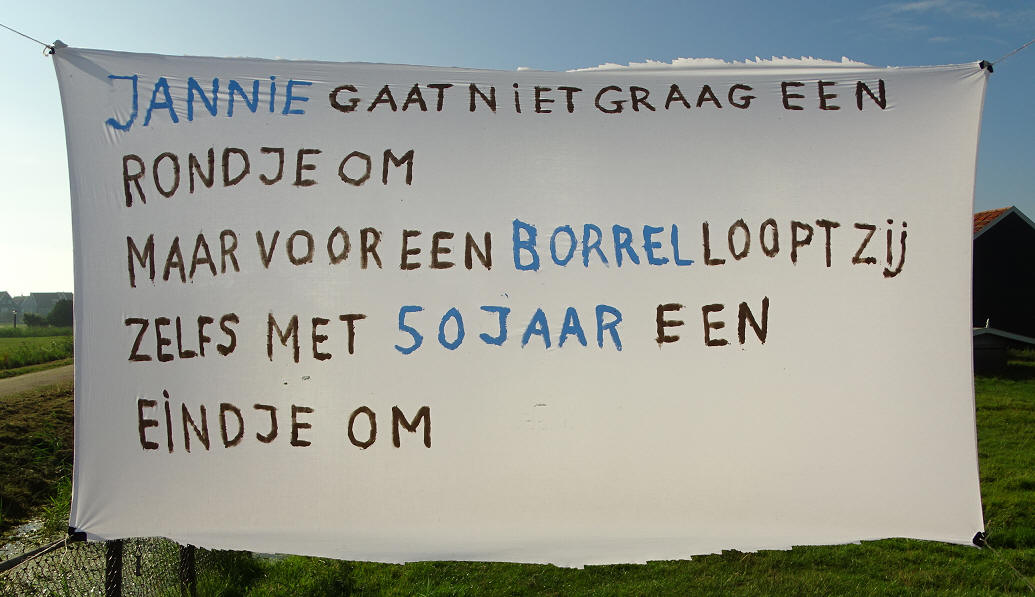 JANNiE GAAT NiET GRAAG EEN
RONDJE OM
MAAR VOOR EEN BORREL LOOPT Zij
ZELFS MET 50 JAAR EEN
EiNDJE OM